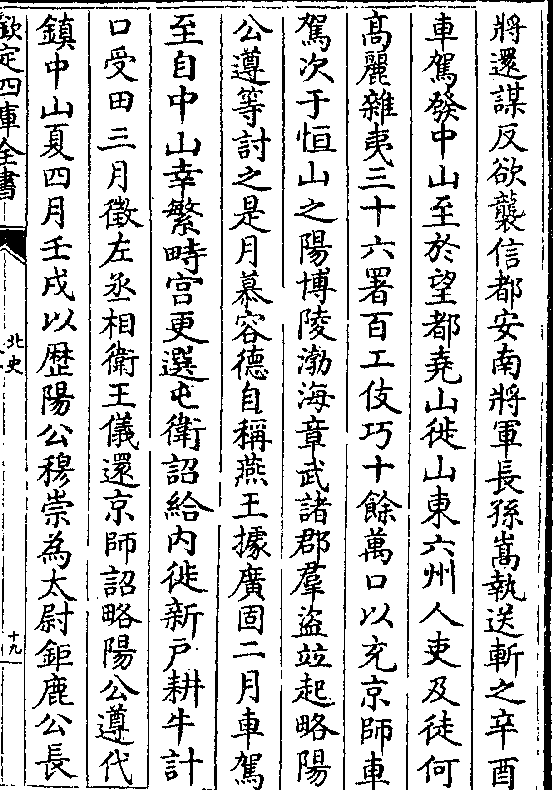 將還謀反欲襲信都安南將軍長孫嵩執送斬之辛酉
車駕發中山至於望都堯山徙山東六州人吏及徒何
高麗雜夷三十六署百工伎巧十餘萬口以充京師車
駕次于恒山之陽博陵渤海章武諸郡羣盜竝起略陽
公遵等討之是月慕容德自稱燕王據廣固二月車駕
至自中山幸繁畤宫更選屯衛詔給内徙新户耕牛計
口受田三月徵左丞相衛王儀還京師詔略陽公遵代
鎮中山夏四月壬戌以歴陽公穆崇為太尉鉅鹿公長
欽定四庫全書
北史
十九